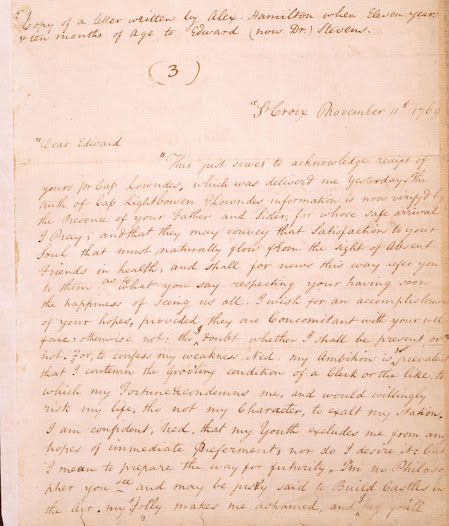 Copy of a letter written by Alex. Hamilton when Eleven years
& ten months of age to Edward (now Dr.) Stevens.
(3)
"St Croix November 11th 1769
"Dear Edward
"This just serves to acknowledge receipt of
yours pr Cap Lowndes, which was deliverd me Yesterday. The
truth of Cap Lightbowen & Lowndes information is now verifyd by
the Presence of your Father and Sister, for whose safe arrival
I Pray; and that they may convey that Satisfaction to your
Soul that must naturally flow from the sight of Absent
Friends in health; and shall for news this way refer you
to them. As to what you say respecting your having soon
the happiness of seeing us all. I wish for an accomplishment
of your hopes, provided they are Concomitant with your wel
fare; otherwise not; tho, I doubt whether I shall be present or
not. For, to confess my weakness Ned my Ambition is prevalent
that I contemn the Groviling condition of a Clerk or the like, to
which my Fortune &c condemns me, and would willingly
risk my life, tho not my Character, to exalt my Station.
I am confident, Ned, that my Youth excludes me from any
hopes of immediate Preferment; nor do I desire it; but
I mean to prepare the way for futurity. I'm no Philoso
pher you see and may be justly said to Build Castles in
the Air. My Folly makes me ashamed, and beg you'll